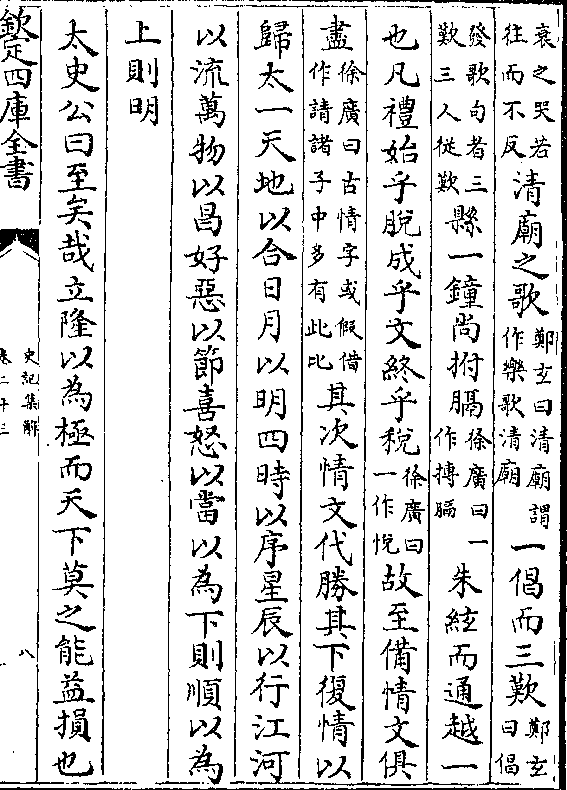 哀之哭若往而不反清廟之歌鄭玄曰清廟謂作樂歌清廟一倡而三歎鄭玄曰倡
發歌句者三歎三人從歎縣一鐘尚拊膈徐廣曰一作搏膈朱絃而通越一
也凡禮始乎脫成乎文終乎稅徐廣曰一作悅故至備情文俱
盡徐廣曰古情字或假借作請諸子中多有此比其次情文代勝其下復情以
歸太一天地以合日月以明四時以序星辰以行江河
以流萬物以昌好惡以節喜怒以當以為下則順以為
上則明
太史公曰至矣哉立隆以為極而天下莫之能益損也
欽定四庫全書
史記集解
卷二十三
八